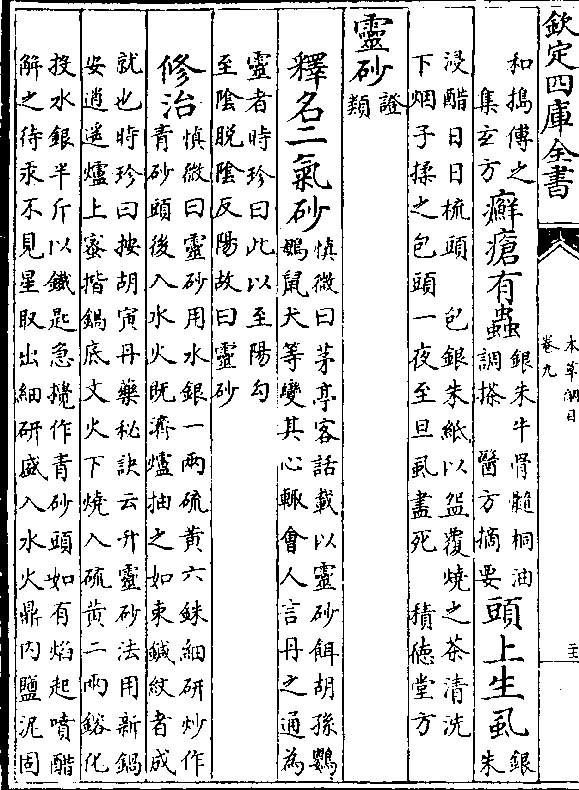 欽定四庫全書
本草綱目
卷九
和搗傅之
集玄方
癬瘡有蟲
銀朱牛骨髓桐油
調搽　醫方摘要
頭上生虱
銀
朱
浸醋日日梳頭　包銀朱紙以盌覆燒之茶清洗
下烟子揉之包頭一夜至旦虱盡死　積德堂方
靈砂
證
類
釋名二氣砂
慎微曰茅亭客話載以靈砂餌胡孫鸚
鵡鼠犬等變其心輒會人言丹之通為
靈者時珍曰此以至陽勾
至陰脱陰反陽故曰靈砂
修治
慎微曰靈砂用水銀一兩硫黄六銖細研炒作
青砂頭後入水火既濟爐抽之如束鍼紋者成
就也時珍曰按胡寅丹藥秘訣云升靈砂法用新鍋
安逍遥爐上蜜揩鍋底文火下燒入硫黄二兩鎔化
投水銀半斤以鐵匙急攪作青砂頭如有焰起噴醋
解之待汞不見星取出細研盛入水火鼎内鹽泥固